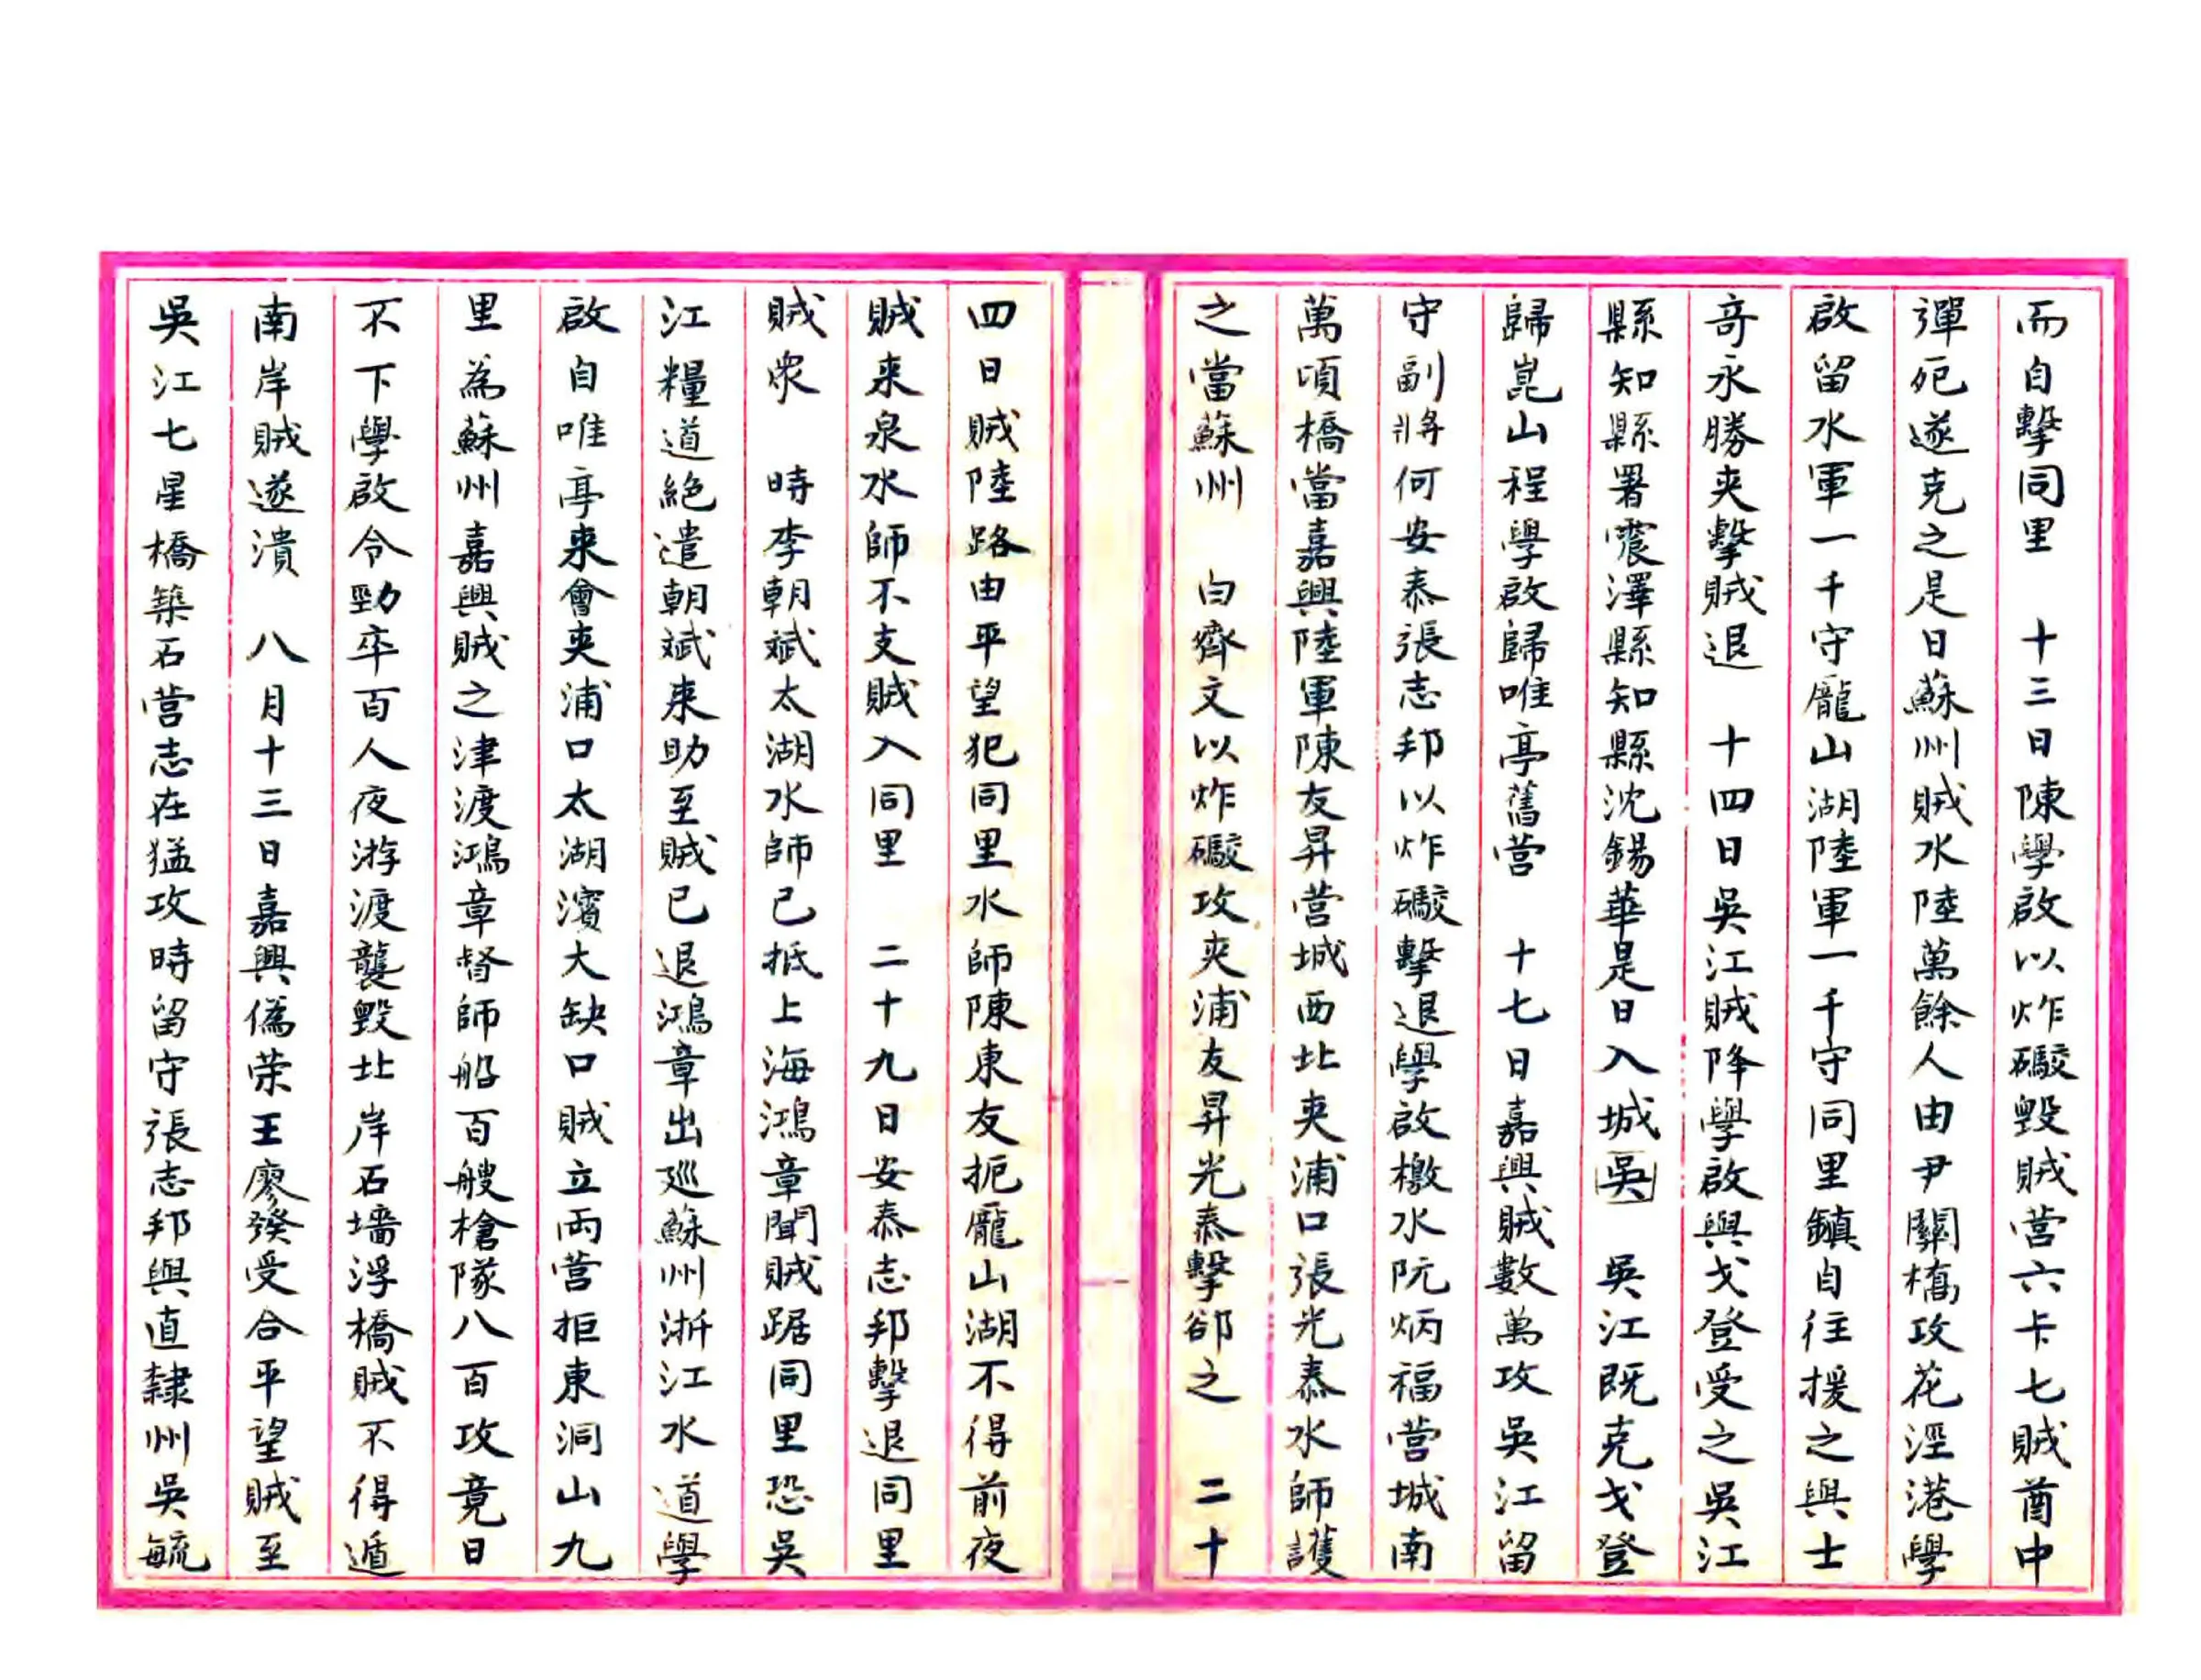 而自擊同里　十三日陳學啟以炸礮毀賊营六卡七賊酋中
彈死遂克之是日蘇州賊水陸萬餘人由尹關橋攻花涇港學
啟留水軍一千守龐山湖陸軍一千守同里鎮自往援之與士
奇永勝夾擊賊退　十四日吳江賊降學啟與戈登受之吳江
縣知縣署震澤縣知縣沈錫華是日入城吳　吳江既克戈登
歸崑山程學啟歸唯亭舊营　十七日嘉興賊數萬攻吳江留
守副將何安泰張志邦以炸礮擊退學啟檄水阮炳福营城南
萬頃橋當嘉興陸軍陳友昇营城西北夾浦口張光泰水師護
之當蘇州　白齊文以炸礮攻夾浦友昇光泰擊卻之　二十
四日賊陸路由平望犯同里水師陳東友扼龐山湖不得前夜
賊来泉水師不支賊入同里　二十九日安泰志邦擊退同里
賊衆　時李朝斌太湖水師已抵上海鴻章聞賊踞同里恐吳
江糧道絕遣朝斌来助至賊已退鴻章出廵蘇州淅江水道學
啟自唯亭来會夾浦口太湖濱大缺口賊立兩营拒東洞山九
里為蘇州嘉興賊之津渡鴻章督師船百艘槍隊八百攻竟日
不下學啟令勁卒百人夜游渡襲毀北岸石墻浮橋賊不得遁
南岸賊遂潰　八月十三日嘉興偽荣王廖發受合平望賊至
吳江七星橋築石营志在猛攻時留守張志邦與直隸州吳毓